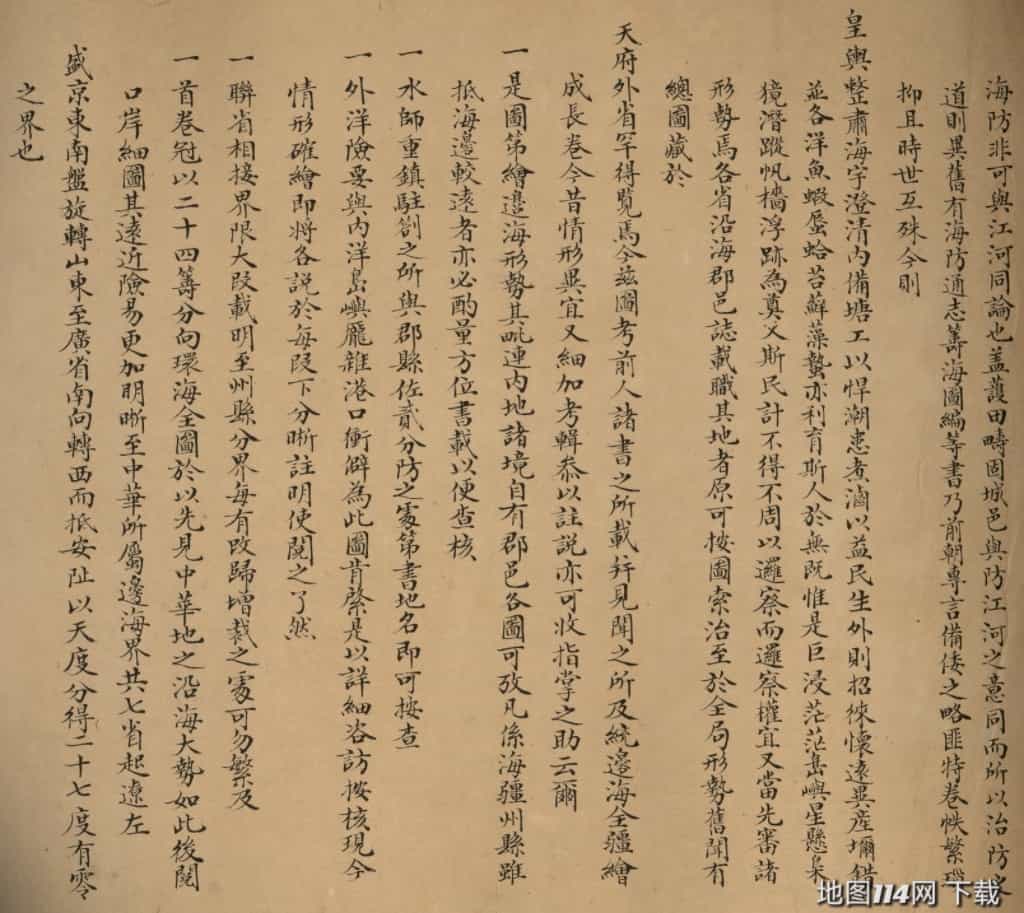 海防非可與江河同論也盖護田疇固城邑與防江河之意同而所以治防之
道則異舊有海防通志籌海圖編等書乃前朝專言備倭之略匪特卷帙繁瑣
抑且時世互殊今則
皇輿整肅海宇澄清內備塘工以悍潮患煮滷以益民生外則招徠懷遠異產壩錯
並各洋魚蝦蜃蛤苔蘚藻蟄亦利育斯人於無既惟是巨浸茫茫島嶼星懸梟
獍潛蹤帆檣浮跡為奠乂斯民計不得不周以邏察而邏察權宜又當先審諸
形勢焉各省沿海郡邑誌載職其地者原可按圖索治至於全局形勢舊聞有
總圖藏於
天府外省罕得覽焉今茲圖考前人諸書之所載幷見聞之所及統邊海全疆繪
成長卷今昔情形異宜又細加考輯叅以註說亦可收指掌之助云爾
一是圖第繪邊海形勢其毗連內地諸境自有郡邑各圖可攷凡係海疆州縣雖
抵海邊較遠者亦必酌量方位書載以便查核
一水師重鎮駐劄之所與郡縣佐貳分防之處第書地名即可按查
一外洋險要與內洋島嶼龎雜港口衝僻為此圖肯綮是以詳細咨訪按核現今
情形確繪即將各說於每段下分晰註明使閱之了然
一聯省相接界限大段載明至州縣分界每有改歸增裁之處可勿繁及
一首卷冠以二十四籌分向環海全圖於以先見中華地之沿海大勢如此後閱
口岸細圖其遠近險易更加明晰至中華所屬邊海界共七省起遼左
盛京東南盤旋轉山東至廣省南向轉西而抵安阯以天度分得二十七度有零
之界也
地图114网 下载